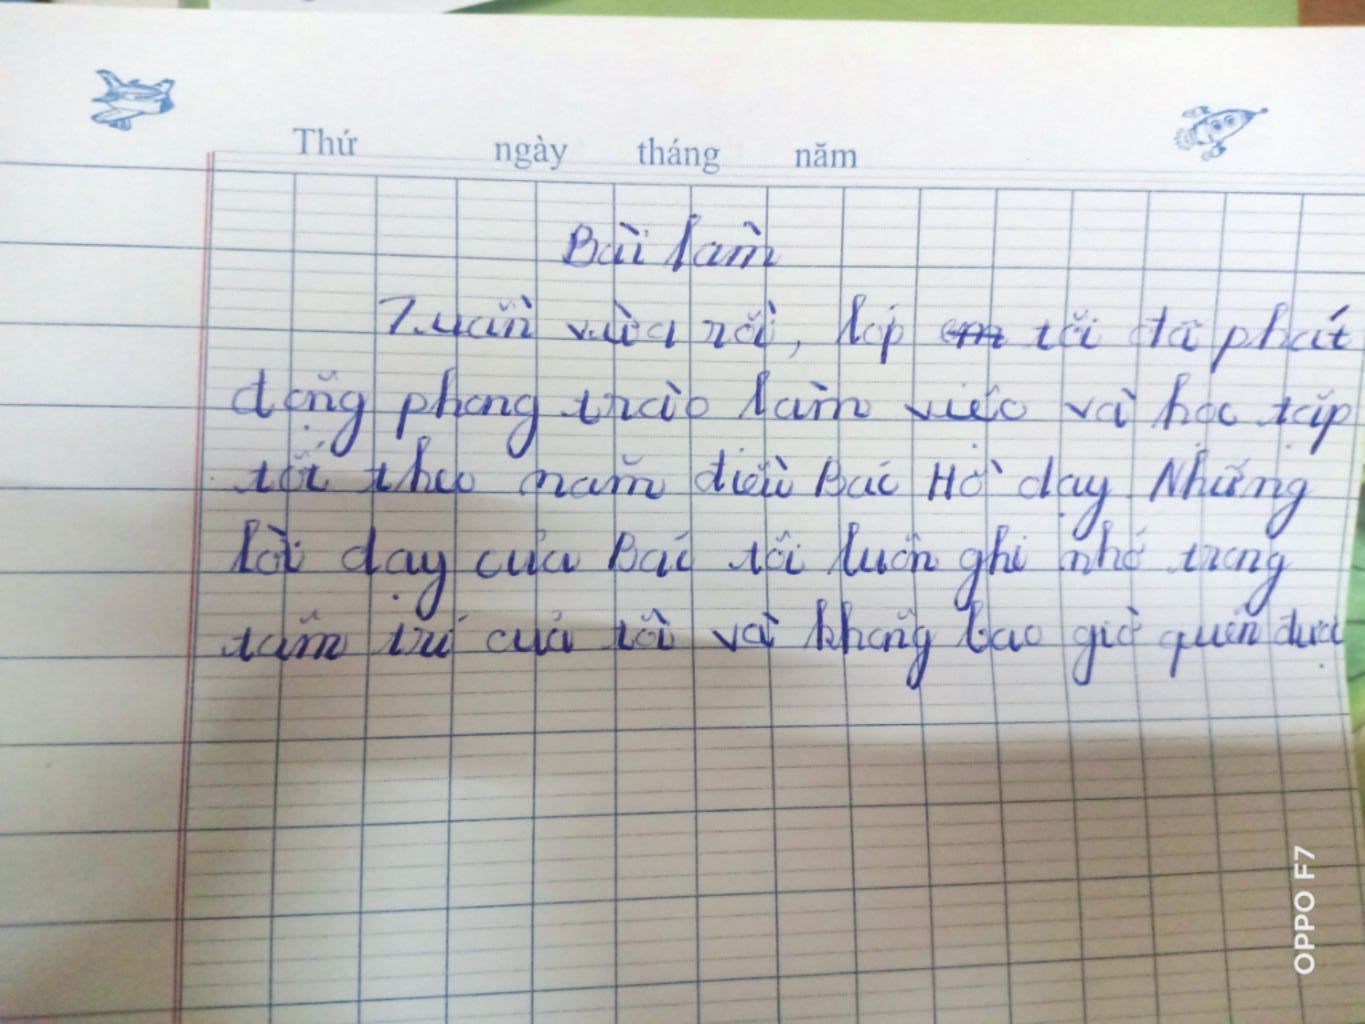 Thứ ngày tháng năm
Bài làm
Tuần vừa rồi, lớp em tôi đã phát
động phong trào làm việc và học tập
tốt theo năm điều Bác Hồ dạy. Những
lời dạy của Bác tôi luôn ghi nhớ trong
tâm trí của tôi và không bao giờ quên được
OPPO F7